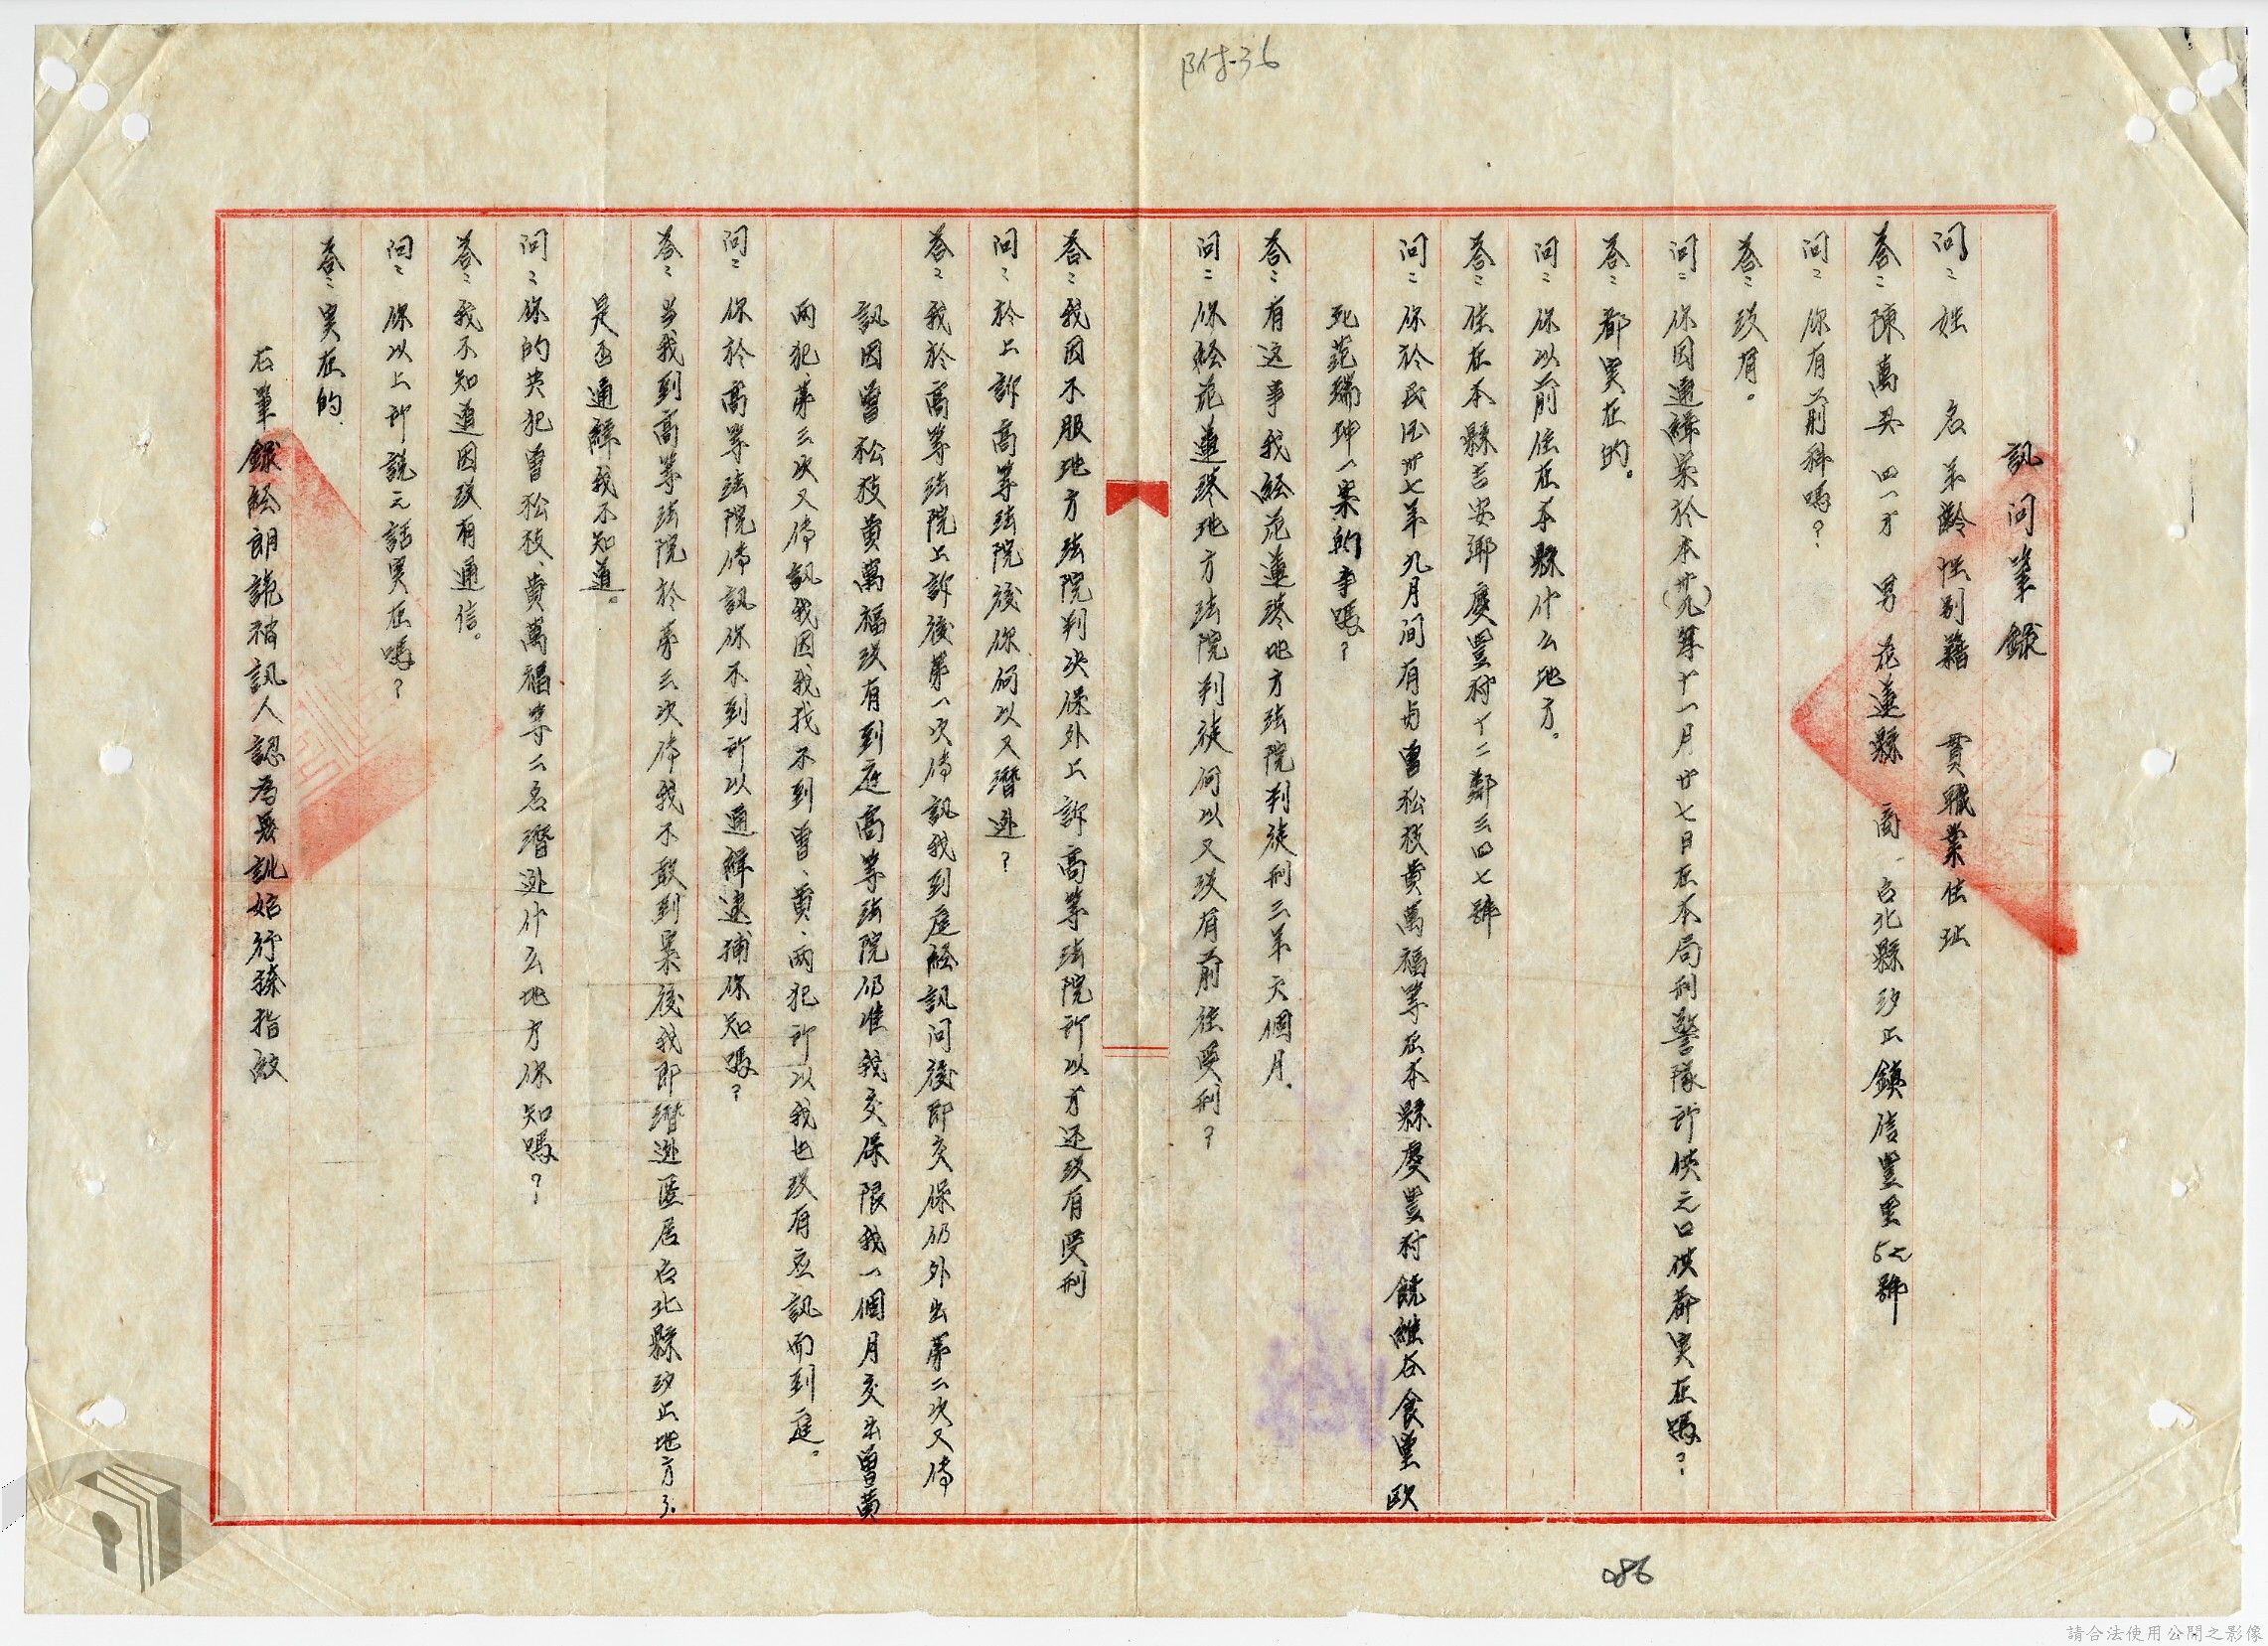 附-36
訊問筆錄
問：姓名年齡性別籍貫職業住址
答：陳萬 四一才 男 花蓮縣 商 台北縣汐止鎮信豐里52號
問：你有前科嗎？
答：沒有。
問：你因通緝案於本(卅九)年十一月廿七日在本局刑警隊所供之口供都実在嗎？
答：都実在的。
問：你以前住在本縣什么地方。
答：住在本縣吉安鄉慶豐村十二鄰三四七號
問：你於民国卅七年九月间有与曾松枝黄萬福等在本縣慶豐村饒維谷食堂欧
死范瑞珅一案的事嗎？
答：有这事我経花蓮港地方法院判徒刑三年六個月.
問：你経花蓮港地方法院判徒何以又沒有前往受刑？
答：我因不服地方法院判决保外上訴高等法院所以才还沒有受刑
問：於上訴高等法院後你何以又潛逃？
答：我於高等法院上訴後第一次傳訊我到庭経訊问後即交保仍外出第二次又傳
訊因曾松枝黄萬福沒有到庭高等法院仍准我交保限我一個月交出曾黄
兩犯、第三次又傳訊我因我找不到曾、黄、兩犯所以我也沒有应訊而到庭。
問：你於高等法院傳訊你不到所以通緝逮捕你知嗎？
答：当我到高等法院於第三次傳我不敢到案後我即潛逃匿居台北縣汐止地方了.
是否通緝我不知道。
問：你的共犯曾松枝、黄萬福等二名潛逃什么地方你知嗎？
答：我不知道因沒有通信。
問：你以上所説之話実在嗎？
答：実在的.
右筆錄経朗読被訊人認為無訛始行捺指紋
086
請合法使用公開之影像